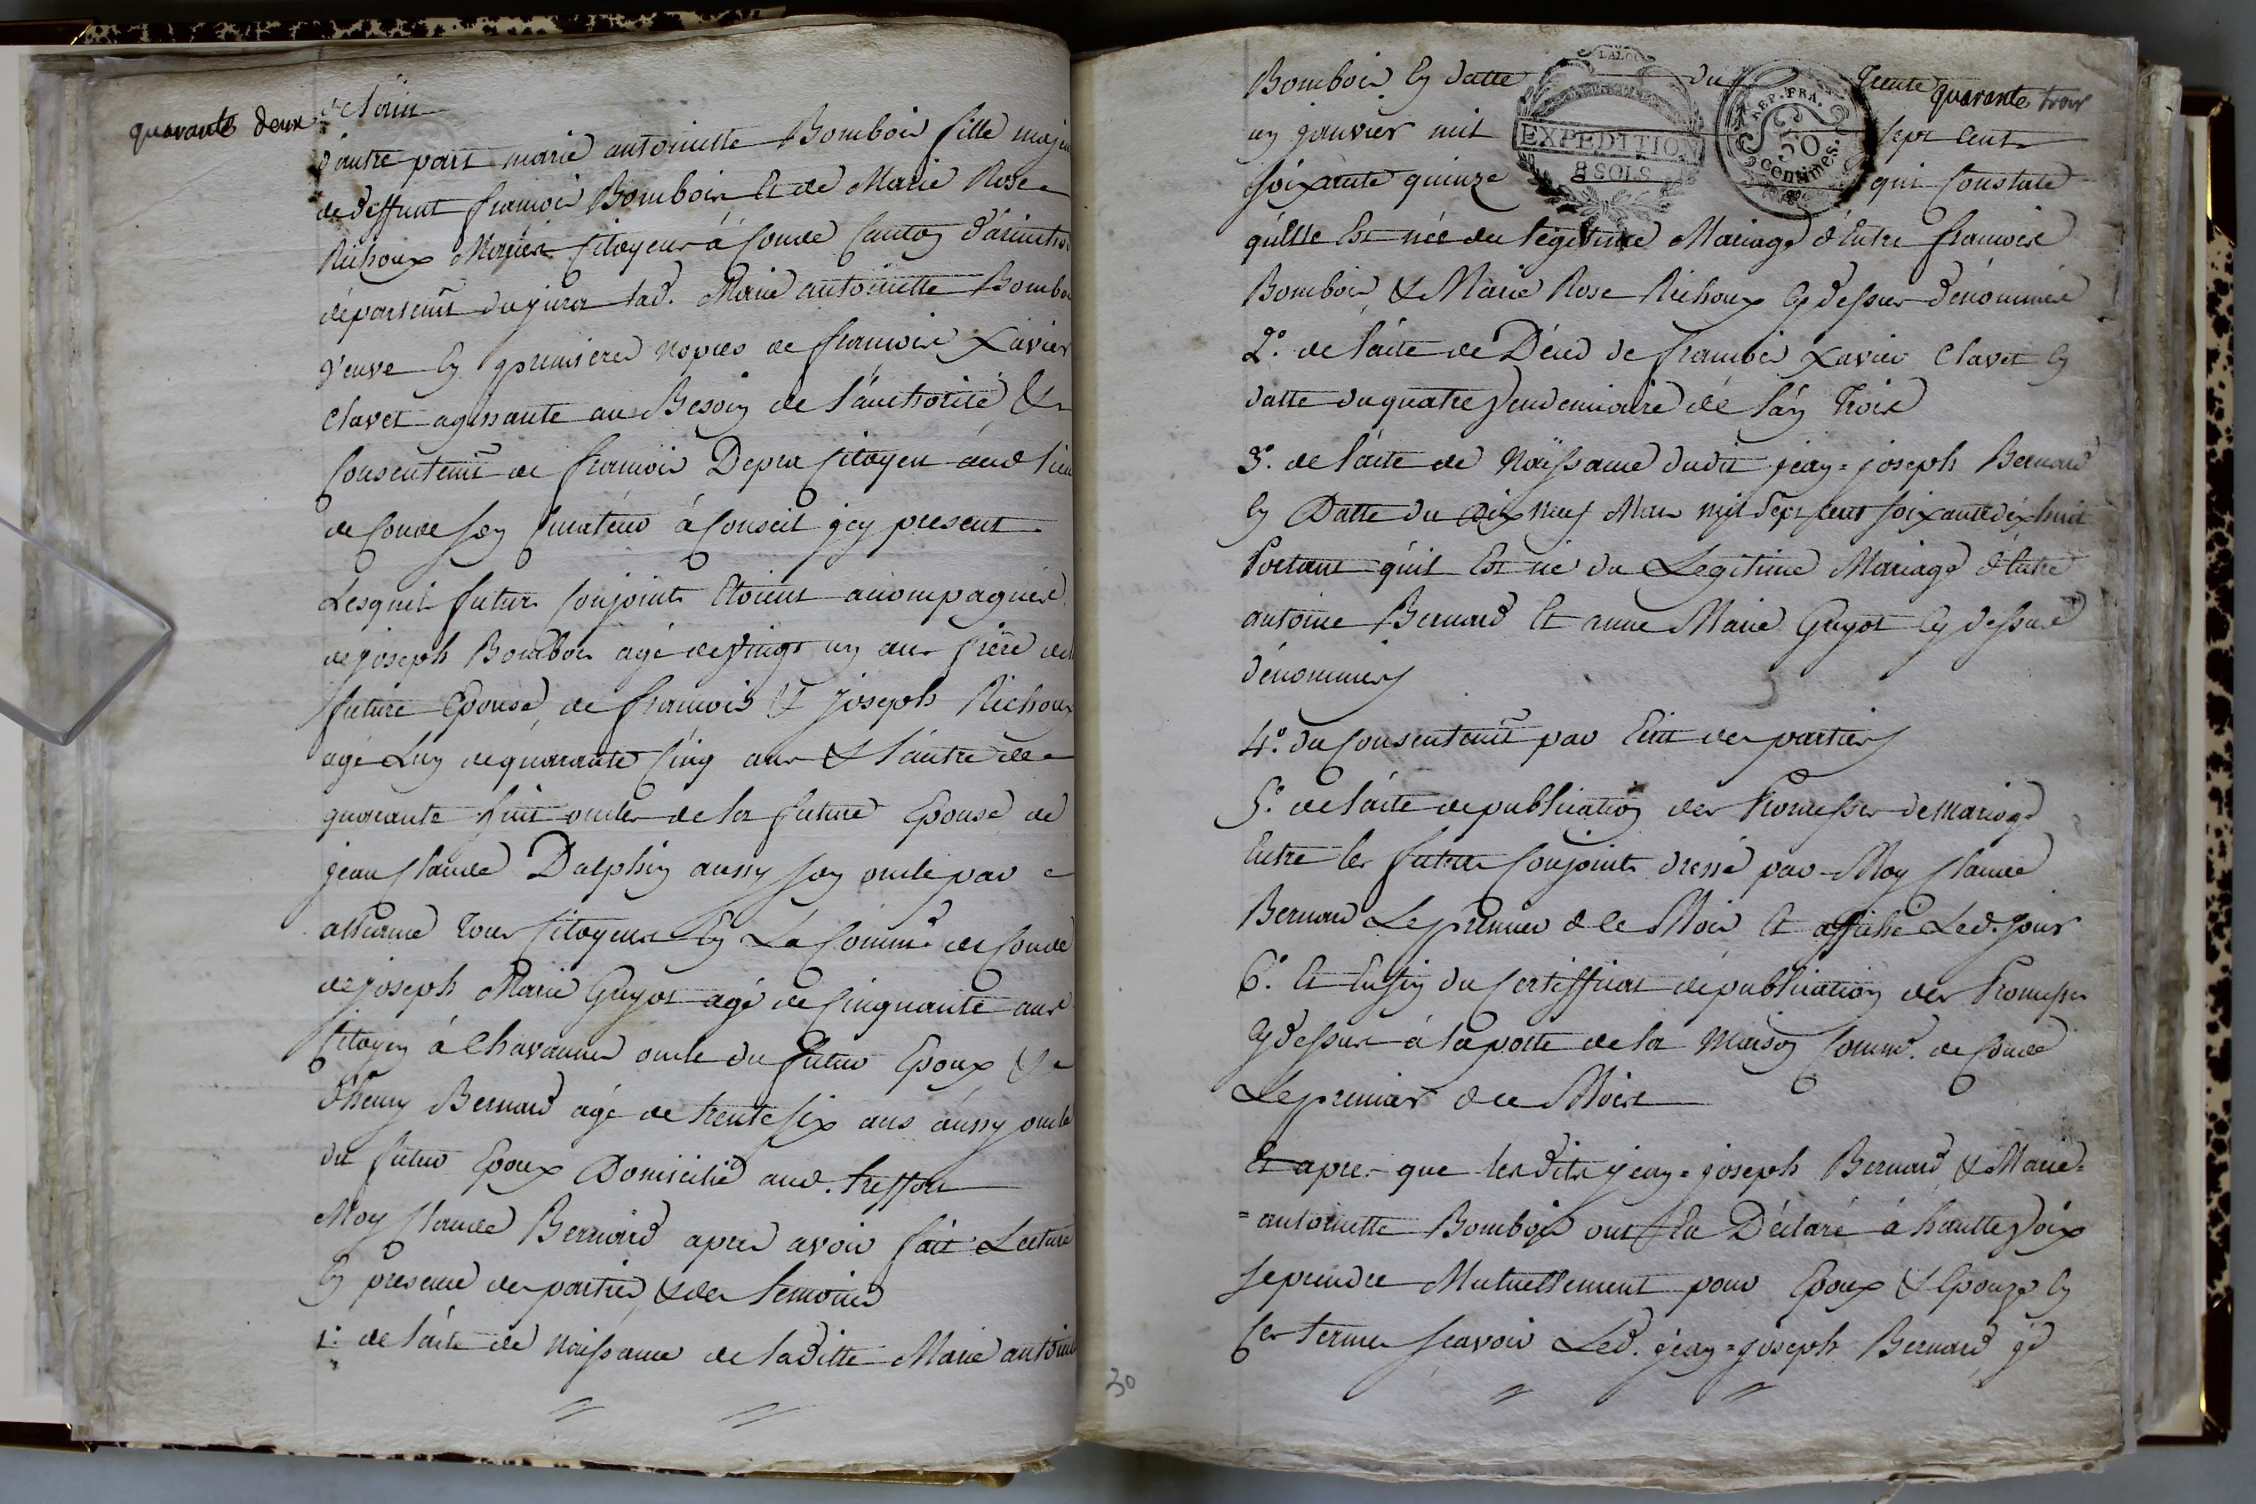 quarante deux
de l'ain
d'autre part marie antoinette Bombois fille maje
de deffunt francois Bombois Et de Marie Rose
Richoux citoyens á Conde Canton d'arintho
départemt. du jura lad. Marie antoinette Bombo
veuve En premieres nopces de francois Xavier
Clavet agissante au Besoin de l'authorité &
Consentemt. de francois Depra Citoyen aud lieu
de Conde son Curateur á Conseil icy present
Lesquels futurs Conjoints Etoient acompagniés
de joseph Bombois agé de vingt un ans frère de l
future Epouse, de francois & joseph Richoux
agé L'un de quarante Cinq ans & l'autre de
quarante huit oncles de la future Epouse de
jean Claude Dalphin aussy son oncle par
alliance tous Citoyens En La Comm.e de Conde
de joseph Marie Guyot agé de Cinquante ans
Citoyen á Chavannes oncle du futur Epoux &
d'henry Bernard agé de trente six ans aussy oncle
du futur Epoux Domicilié aud. treffort
Moy Claude Bernard apres avoir fait Lecture
En presence des parties & des temoins
1.º de l'acte de Naissance de laditte Marie antoine
30
quarante trois
LALOI
EXPEDITION
8 SOLS
REP. FRA.
50
Centimes.
Bombois En datte du trente
un janvier mil sept cent
soixante quinze qui Constate
qu'elle Est née du légitime Mariage d'Entre francois
Bombois & Marie Rose Richoux Cy dessus dénommés
2.º de l'acte de Décès de francois Xavier Clavet En
datte du quatre Vendemiaire de l'an trois
3.º de l'acte de Naissance dudit jean=joseph Bernard
En Datte du dix neuf Mars mil Sept Cent soixante dix huit
Portant qu'il Est né du Legitime Mariage d'Entre
antoine Bernard Et anne Marie Guyot Cy dessus
dénommés
4.º du Consentemt. par Ecrit des parties
5.º de l'acte de publication des Promesses de Mariage
Entre les futurs Conjoints dressé par Moy Claude
Bernard Le premier de ce Mois Et affiché Led. Jour
6.º Et Enfin du Certifficat de publication des Promesses
Cy dessus á la porte de la Maison Comm.e de Conde
Le premier de ce Mois
Et apres que lesdits jean=joseph Bernard & Marie=
=antoinette Bombois ont Eu Déclaré á haute Voix
se prendre Mutuellement pour Epoux & Epouze En
Ces termes scavoir Led. jean=joseph Bernard je